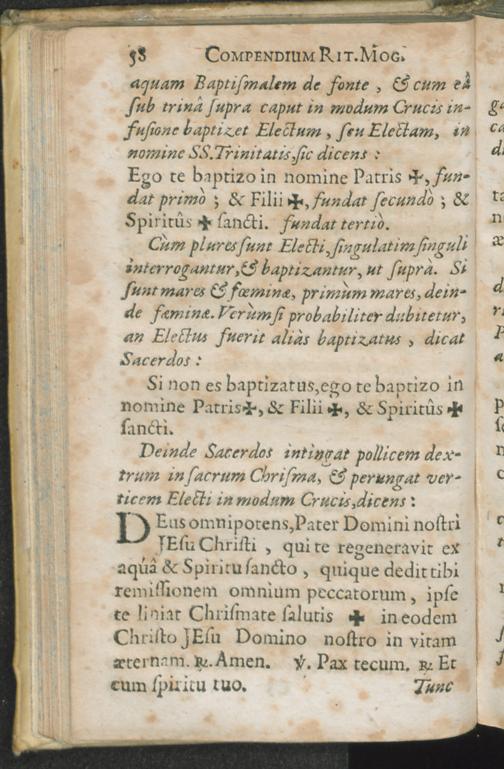 58 COMPENDIUM RIT. MOG.
aquam Baptiſmalem de fonte, & cum eâ
ſub trinâ ſupra caput in modum Crucis in-
fuſione baptizet Electum, ſeu Electam, in
nomine SS. Trinitatis, ſic dicens:
Ego te baptizo in nomine Patris ✠, fun-
dat primò; & Filii ✠, fundat ſecundò; &
Spiritûs ✠ ſancti. fundat tertiò.
Cùm plures ſunt Electi, ſingulatim ſinguli
interrogantur, & baptizantur, ut ſuprà. Si
ſunt mares & fœminæ, primùm mares, dein-
de fæminæ. Verùm ſi probabiliter dubitetur,
an Electus fuerit aliàs baptizatus, dicat
Sacerdos:
Si non es baptizatus, ego te baptizo in
nomine Patris ✠, & Filii ✠, & Spiritûs ✠
ſancti.
Deinde Sacerdos intingat pollicem dex-
trum in ſacrum Chriſma, & perungat ver-
ticem Electi in modum Crucis, dicens:
DEus omnipotens, Pater Domini noſtri
JEſu Chriſti, qui te regeneravit ex
aquâ & Spiritu ſancto, quique dedit tibi
remiſſionem omnium peccatorum, ipſe
te liniat Chriſmate ſalutis ✠ in eodem
Chriſto JEſu Domino noſtro in vitam
æternam. ℟. Amen. ℣. Pax tecum. ℟. Et
cum ſpiritu tuo. Tunc